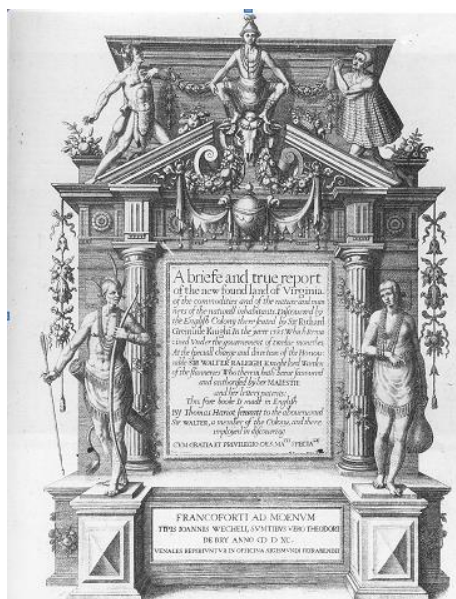 A briefe and true report
of the new found land of Virginia.
of the commodities and of the nature and man
ners of the naturall inhabitants. Discouered by
the English Colony there seated by Sir Richard
Greinuile Knight In the yeere 1585. Which Rema
ined Vnder the gouernement of twelue monethes,
At the speciall charge and direction of the Honou-
rable SIR WALTER RALEIGH Knight lord Warden
of the stanneries Who therein hath beene fauoured
and authorised by her MAIESTIE
and her letters patents:
This fore booke Is made in English
By Thomas Hariot seruant to the abouenamed
Sir WALTER, a member of the Colony, and there
imployed in discouering
CVM GRATIA ET PRIVILEGIO CÆS. MATIS SPECIALI
FRANCOFORTI AD MOENVM
TYPIS IOANNIS WECHELI, SVMTIBVS VERO THEODORI
DE BRY ANNO CIƆ IƆ XC.
VENALES REPERIVNTVR IN OFFICINA SIGISMVNDI FEIRABENDII